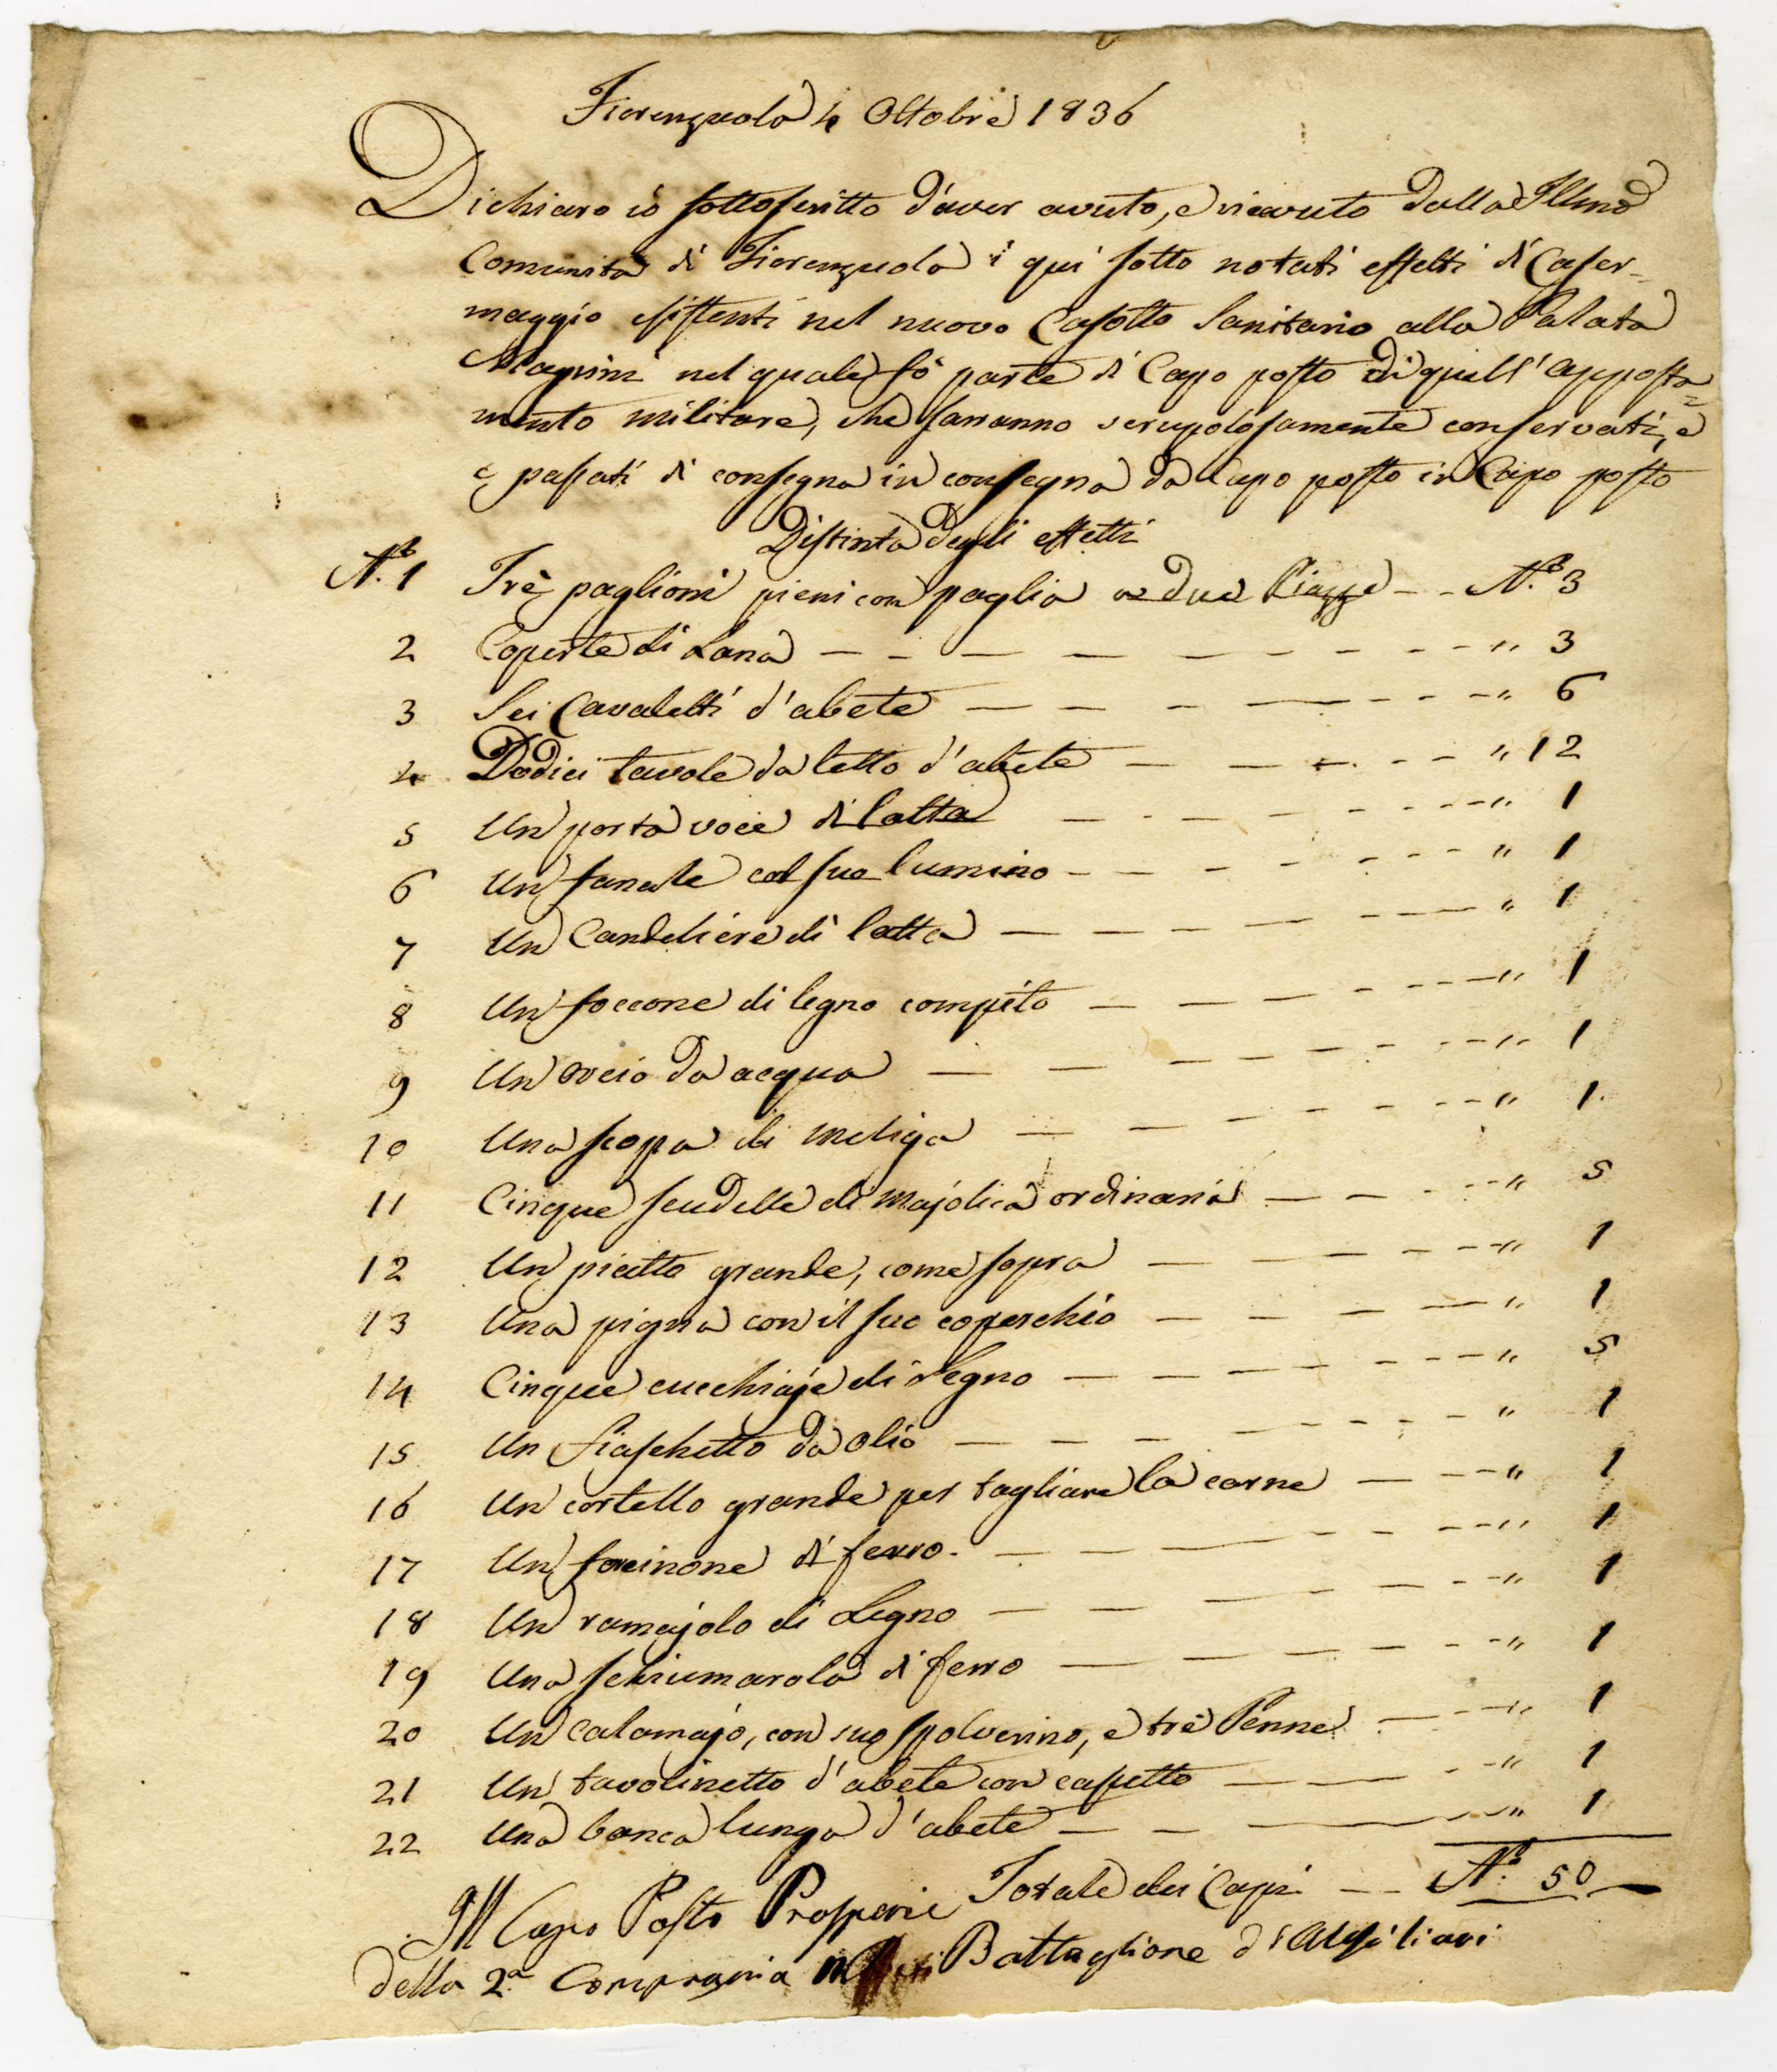 Fiorenzuola 4 Ottobre 1836
Dichiaro io sottoscritto d'aver avuto, e ricevuto dalla Illma
Comunità di Fiorenzuola i qui sotto notati effetti di Caser-
maggio esistenti nel nuovo Casotto Sanitario alla Palata
nel quale fò parte di Capo posto di quell'apposta=
mento militare, che saranno scrupolosamente conservati, e
e passati di consegna in consegna da Capo posto in Capo posto
Distinta degli effetti
N.o 1 Trè paglioni pieni con paglia a due Piazze -- N.o 3
2 Coperte di Lana " 3
3 Sei Cavaletti d'abete " 6
4 Dodici tavole da letto d'abete " 12
5 Un porta voce di latta " 1
6 Un fanale col suo lumino " 1
7 Un Candeliere di latta " 1
8 Un foccone di legno compito " 1
9 Un orcio da acqua " 1
10 Una scopa di meliga " 1
11 Cinque scudelle di majolica ordinaria " 5
12 Un piatto grande, come sopra " 1
13 Una pigna con il suo coperchio " 1
14 Cinque cucchiaje di Legno " 5
15 Un fiaschetto da olio " 1
16 Un cortello grande per tagliare la carne " 1
17 Un forcinone di ferro " 1
18 Un ramajolo di Legno " 1
19 Una schiumarola di ferro " 1
20 Un calamajo, con suo spolverino, e trè Penne " 1
21 Un tavolinetto d'abete con casetto " 1
22 Una banca lunga d'abete " 1
Totale dei Capi -- N.o 50
Ill Capo Posto Prosperie
della 2a Compagnia Battaglione d'Ausiliari